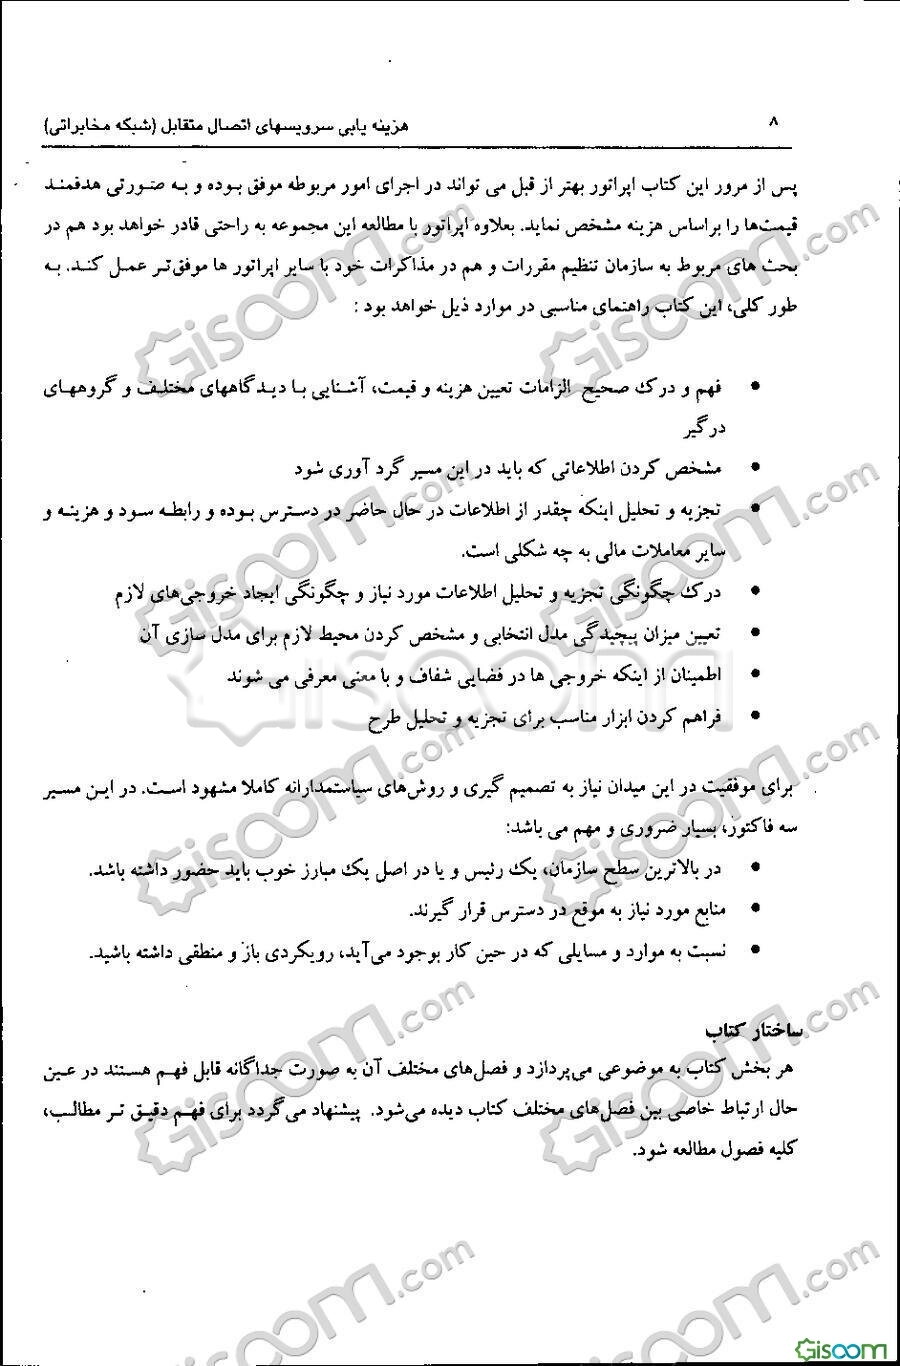 ۸ هزینه یابی سرویسهای اتصال متقابل (شبکه مخابراتی)
پس از مرور این کتاب اپراتور بهتر از قبل می تواند در اجرای امور مربوطه موفق بوده و به صورتی هدفمند
قیمت‌ها را براساس هزینه مشخص نماید. بعلاوه اپراتور با مطالعه این مجموعه به راحتی قادر خواهد بود هم در
بحث های مربوط به سازمان تنظیم مقررات و هم در مذاکرات خود با سایر اپراتور ها موفق‌تر عمل کند. به
طور کلی، این کتاب راهنمای مناسبی در موارد ذیل خواهد بود :
• فهم و درک صحیح الزامات تعیین هزینه و قیمت، آشنایی با دیدگاههای مختلف و گروههای
درگیر
• مشخص کردن اطلاعاتی که باید در این مسیر گرد آوری شود
• تجزیه و تحلیل اینکه چقدر از اطلاعات در حال حاضر در دسترس بوده و رابطه سود و هزینه و
سایر معاملات مالی به چه شکلی است.
• درک چگونگی تجزیه و تحلیل اطلاعات مورد نیاز و چگونگی ایجاد خروجی‌های لازم
• تعیین میزان پیچیدگی مدل انتخابی و مشخص کردن محیط لازم برای مدل سازی آن
• اطمینان از اینکه خروجی ها در فضایی شفاف و با معنی معرفی می شوند
• فراهم کردن ابزار مناسب برای تجزیه و تحلیل طرح
برای موفقیت در این میدان نیاز به تصمیم گیری و روش‌های سیاستمدارانه کاملا مشهود است. در این مسیر
سه فاکتور، بسیار ضروری و مهم می باشد:
• در بالاترین سطح سازمان، یک رئیس و یا در اصل یک مبارز خوب باید حضور داشته باشد.
• منابع مورد نیاز به موقع در دسترس قرار گیرند.
• نسبت به موارد و مسایلی که در حین کار بوجود می‌آید، رویکردی باز و منطقی داشته باشید.
ساختار کتاب
هر بخش کتاب به موضوعی می‌پردازد و فصل‌های مختلف آن به صورت جداگانه قابل فهم هستند در عین
حال ارتباط خاصی بین فصل‌های مختلف کتاب دیده می‌شود. پیشنهاد می‌گردد برای فهم دقیق تر مطالب،
کلیه فصول مطالعه شود.
Giscom.com
Giscom
Gisoom